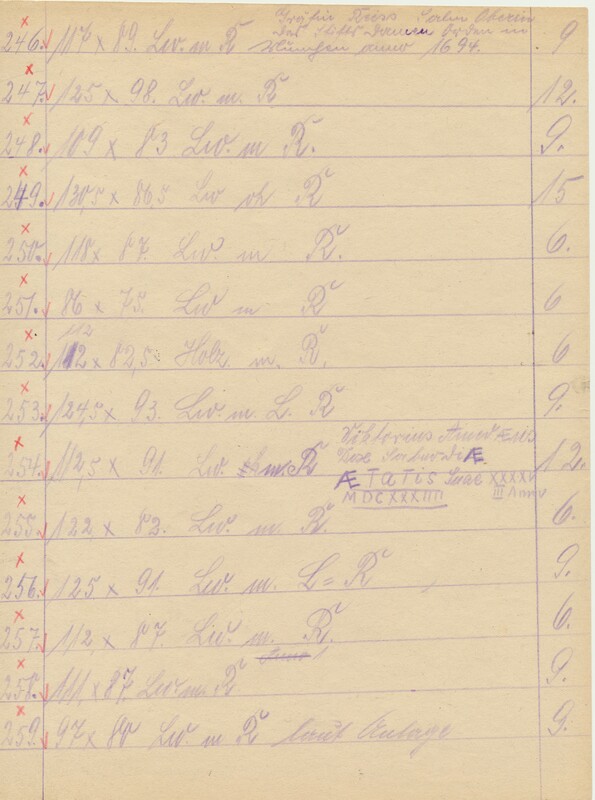 246. 117 x 89. Lw. m. R Gräfin Salm Oberin
des Stifts Damen Orden in
anno 1694. 9
247. 125 x 98. Lw. m. R 12.
248. 109 x 83 Lw. m R. 9.
249. 130,5 x 86,5 Lw oh R 15
250. 118 x 87. Lw. m R. 6.
251. 86 x 75. Lw m R 6
112
252. 112 x 82,5. Holz. m. R. 6
253. 124,5 x 93. Lw. m. L. R 9.
Viktorius Amed
254. 112,5 x 91. Lw. m. R 12.
ÆTaTis Suae XXXXV
MDCXXXIIII III Anno
255. 122 x 82. Lw. m R. 6.
256. 125 x 91. Lw. m. L = R 9.
257. 112 x 87. Lw. m. R. 6.
258. 111 x 87. Lw. m R 9.
259. 97 x 80 Lw. m R laut Anlage 9.